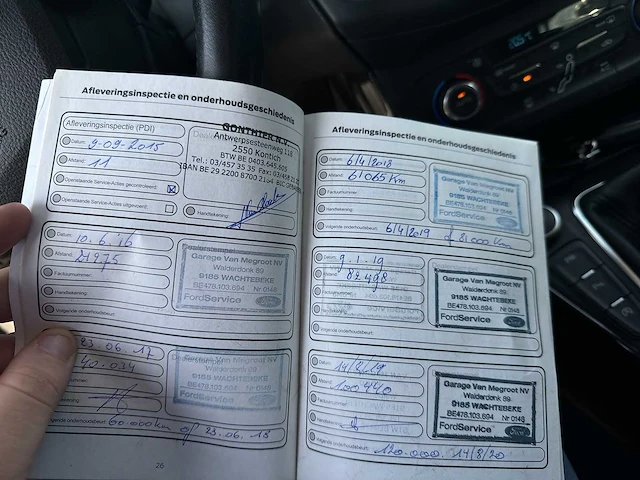 Afleveringsinspectie en onderhoudsgeschiedenis
Afleveringsinspectie (PDI)
Datum: 9-09-2015
Afstand: 11
Openstaande Service-Acties gecontroleerd:
Openstaande Service-Acties uitgevoerd:
GONTHIER N.V.
Antwerpsesteenweg 118
2550 Kontich
BTW BE 0403.545.605
Tel.: 03/457 35 35
Handtekening:
Datum: 10.6.16
Afstand: 21975
Factuurnummer:
Handtekening:
Garage Van Megroot NV
Walderdonk 89
9185 WACHTEBEKE
BE478.103.694 Nr 0148
FordService
23.06.17
40.034
Garage Van Megroot NV
Walderdonk 89
9185 WACHTEBEKE
BE478.103.694 Nr 0148
FordService
Volgende onderhoudsbeurt: 60.000 km of 23.06.18
26
Afleveringsinspectie en onderhoudsgeschiedenis
Datum: 6/4/2018
Afstand: 61065 Km
Factuurnummer:
Handtekening:
Garage Van Megroot NV
Walderdonk 89
9185 WACHTEBEKE
BE478.103.694 Nr 0148
FordService
Volgende onderhoudsbeurt: 6/4/2019 of 81000 Km
Datum: 9.1.19
Afstand: 82498
Factuurnummer:
Handtekening:
Garage Van Megroot NV
Walderdonk 89
9185 WACHTEBEKE
BE478.103.694 Nr 0148
FordService
Volgende onderhoudsbeurt:
Datum: 14/8/19
Afstand: 100440
Factuurnummer:
Handtekening:
Garage Van Megroot NV
Walderdonk 89
9185 WACHTEBEKE
BE478.103.694 Nr 0148
FordService
Volgende onderhoudsbeurt: 120.000. 14/8/20